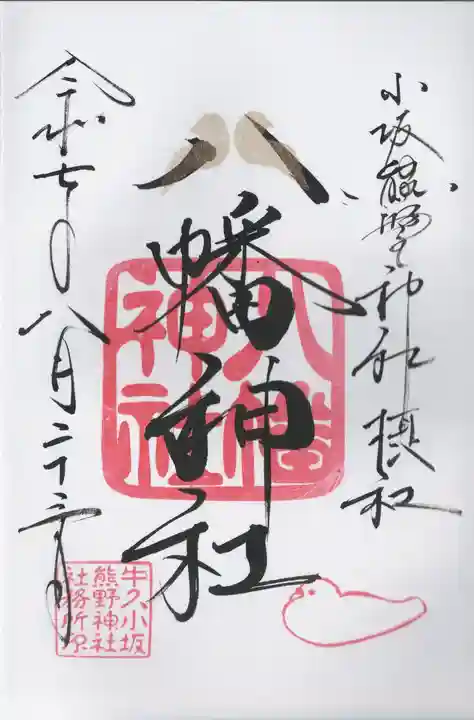 小坂熊野神社摂社
八幡神社
八幡
神社
令和七年八月二十三日
牛久小坂
熊野神社
社務所印